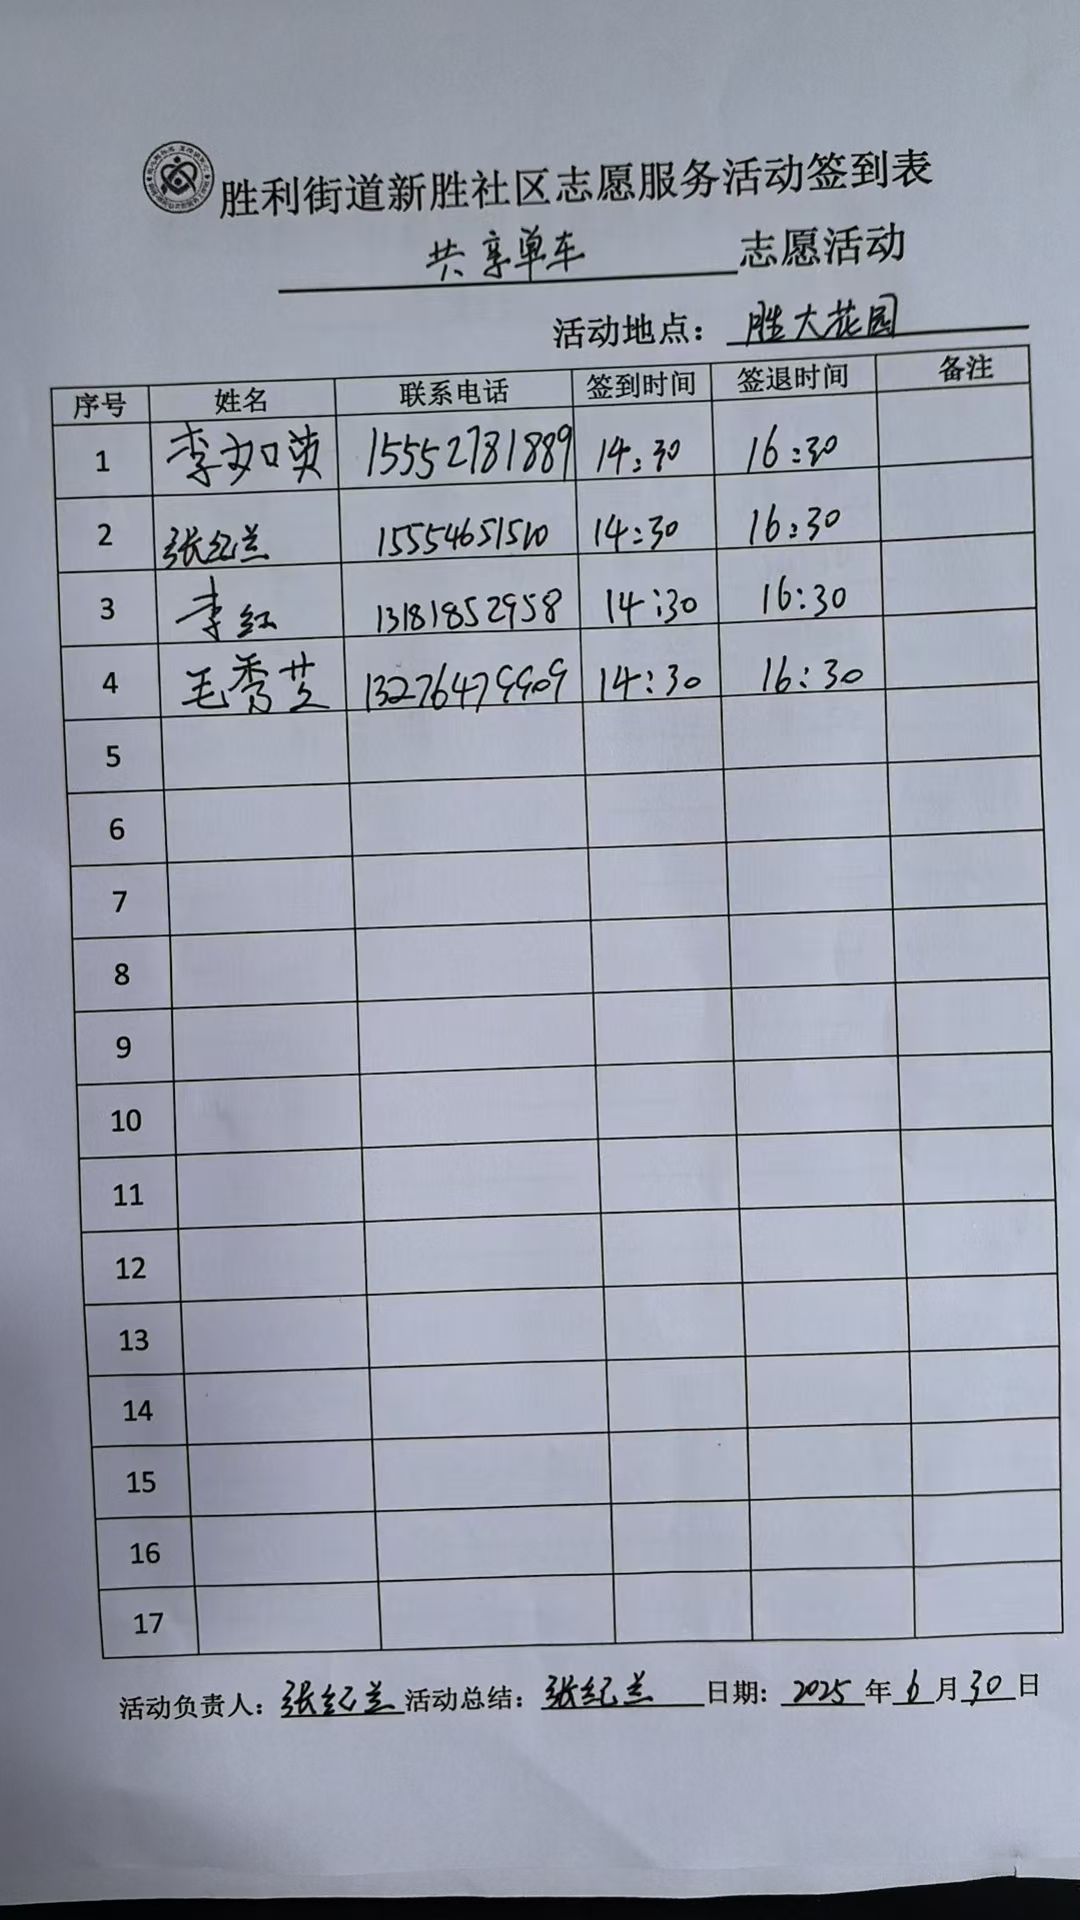 胜利街道新胜社区志愿服务活动签到表
共享单车 志愿活动
活动地点：胜大花园
序号 姓名 联系电话 签到时间 签退时间 备注
1 李如英 15552781889 14:30 16:30
2 张纪兰 15554651510 14:30 16:30
3 李红 13181852958 14:30 16:30
4 毛秀芝 13276479909 14:30 16:30
5
6
7
8
9
10
11
12
13
14
15
16
17
活动负责人：张纪兰 活动总结：张纪兰 日期：2025年6月30日